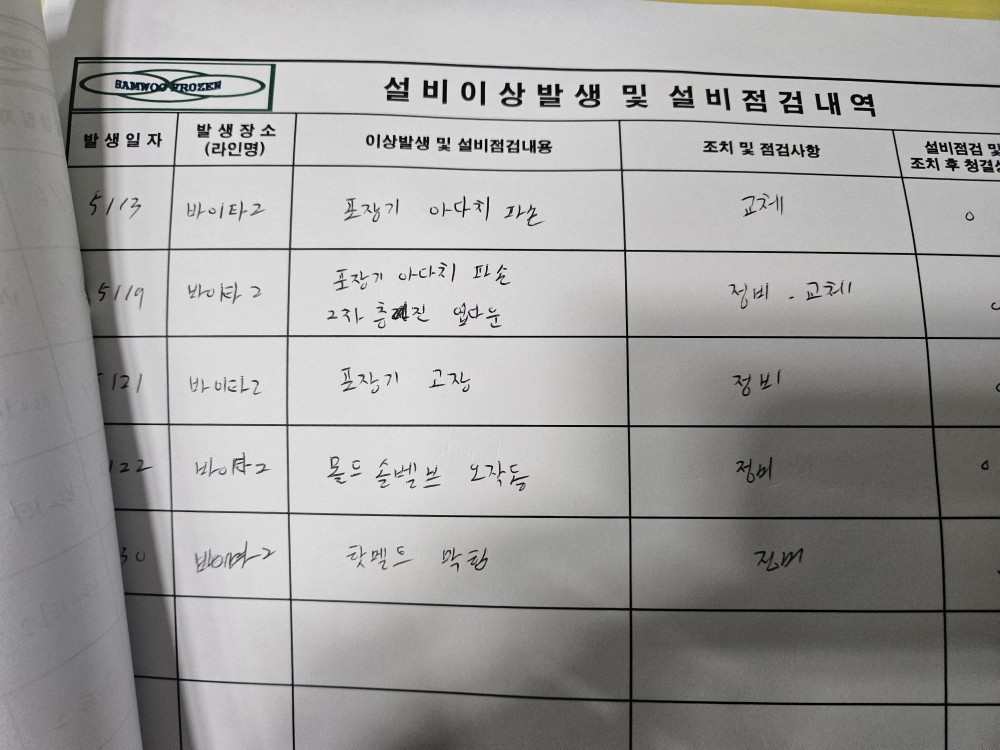 SAMWOO FROZEN
설비이상발생 및 설비점검내역
발생일자 발생장소 이상발생 및 설비점검내용 조치 및 점검사항 설비점검 및
(라인명) 조치 후 청결상
5/13 바이타2 포장기 아다치 파손 교체 o
5/19 바이타2 포장기 아다치 파손 정비 . 교체
2차 충진 업다운
/21 바이타2 포장기 고장 정비
/22 바이타2 몰드 솔벨브 오작동 정비 o
30 2 핫멜트 막힘